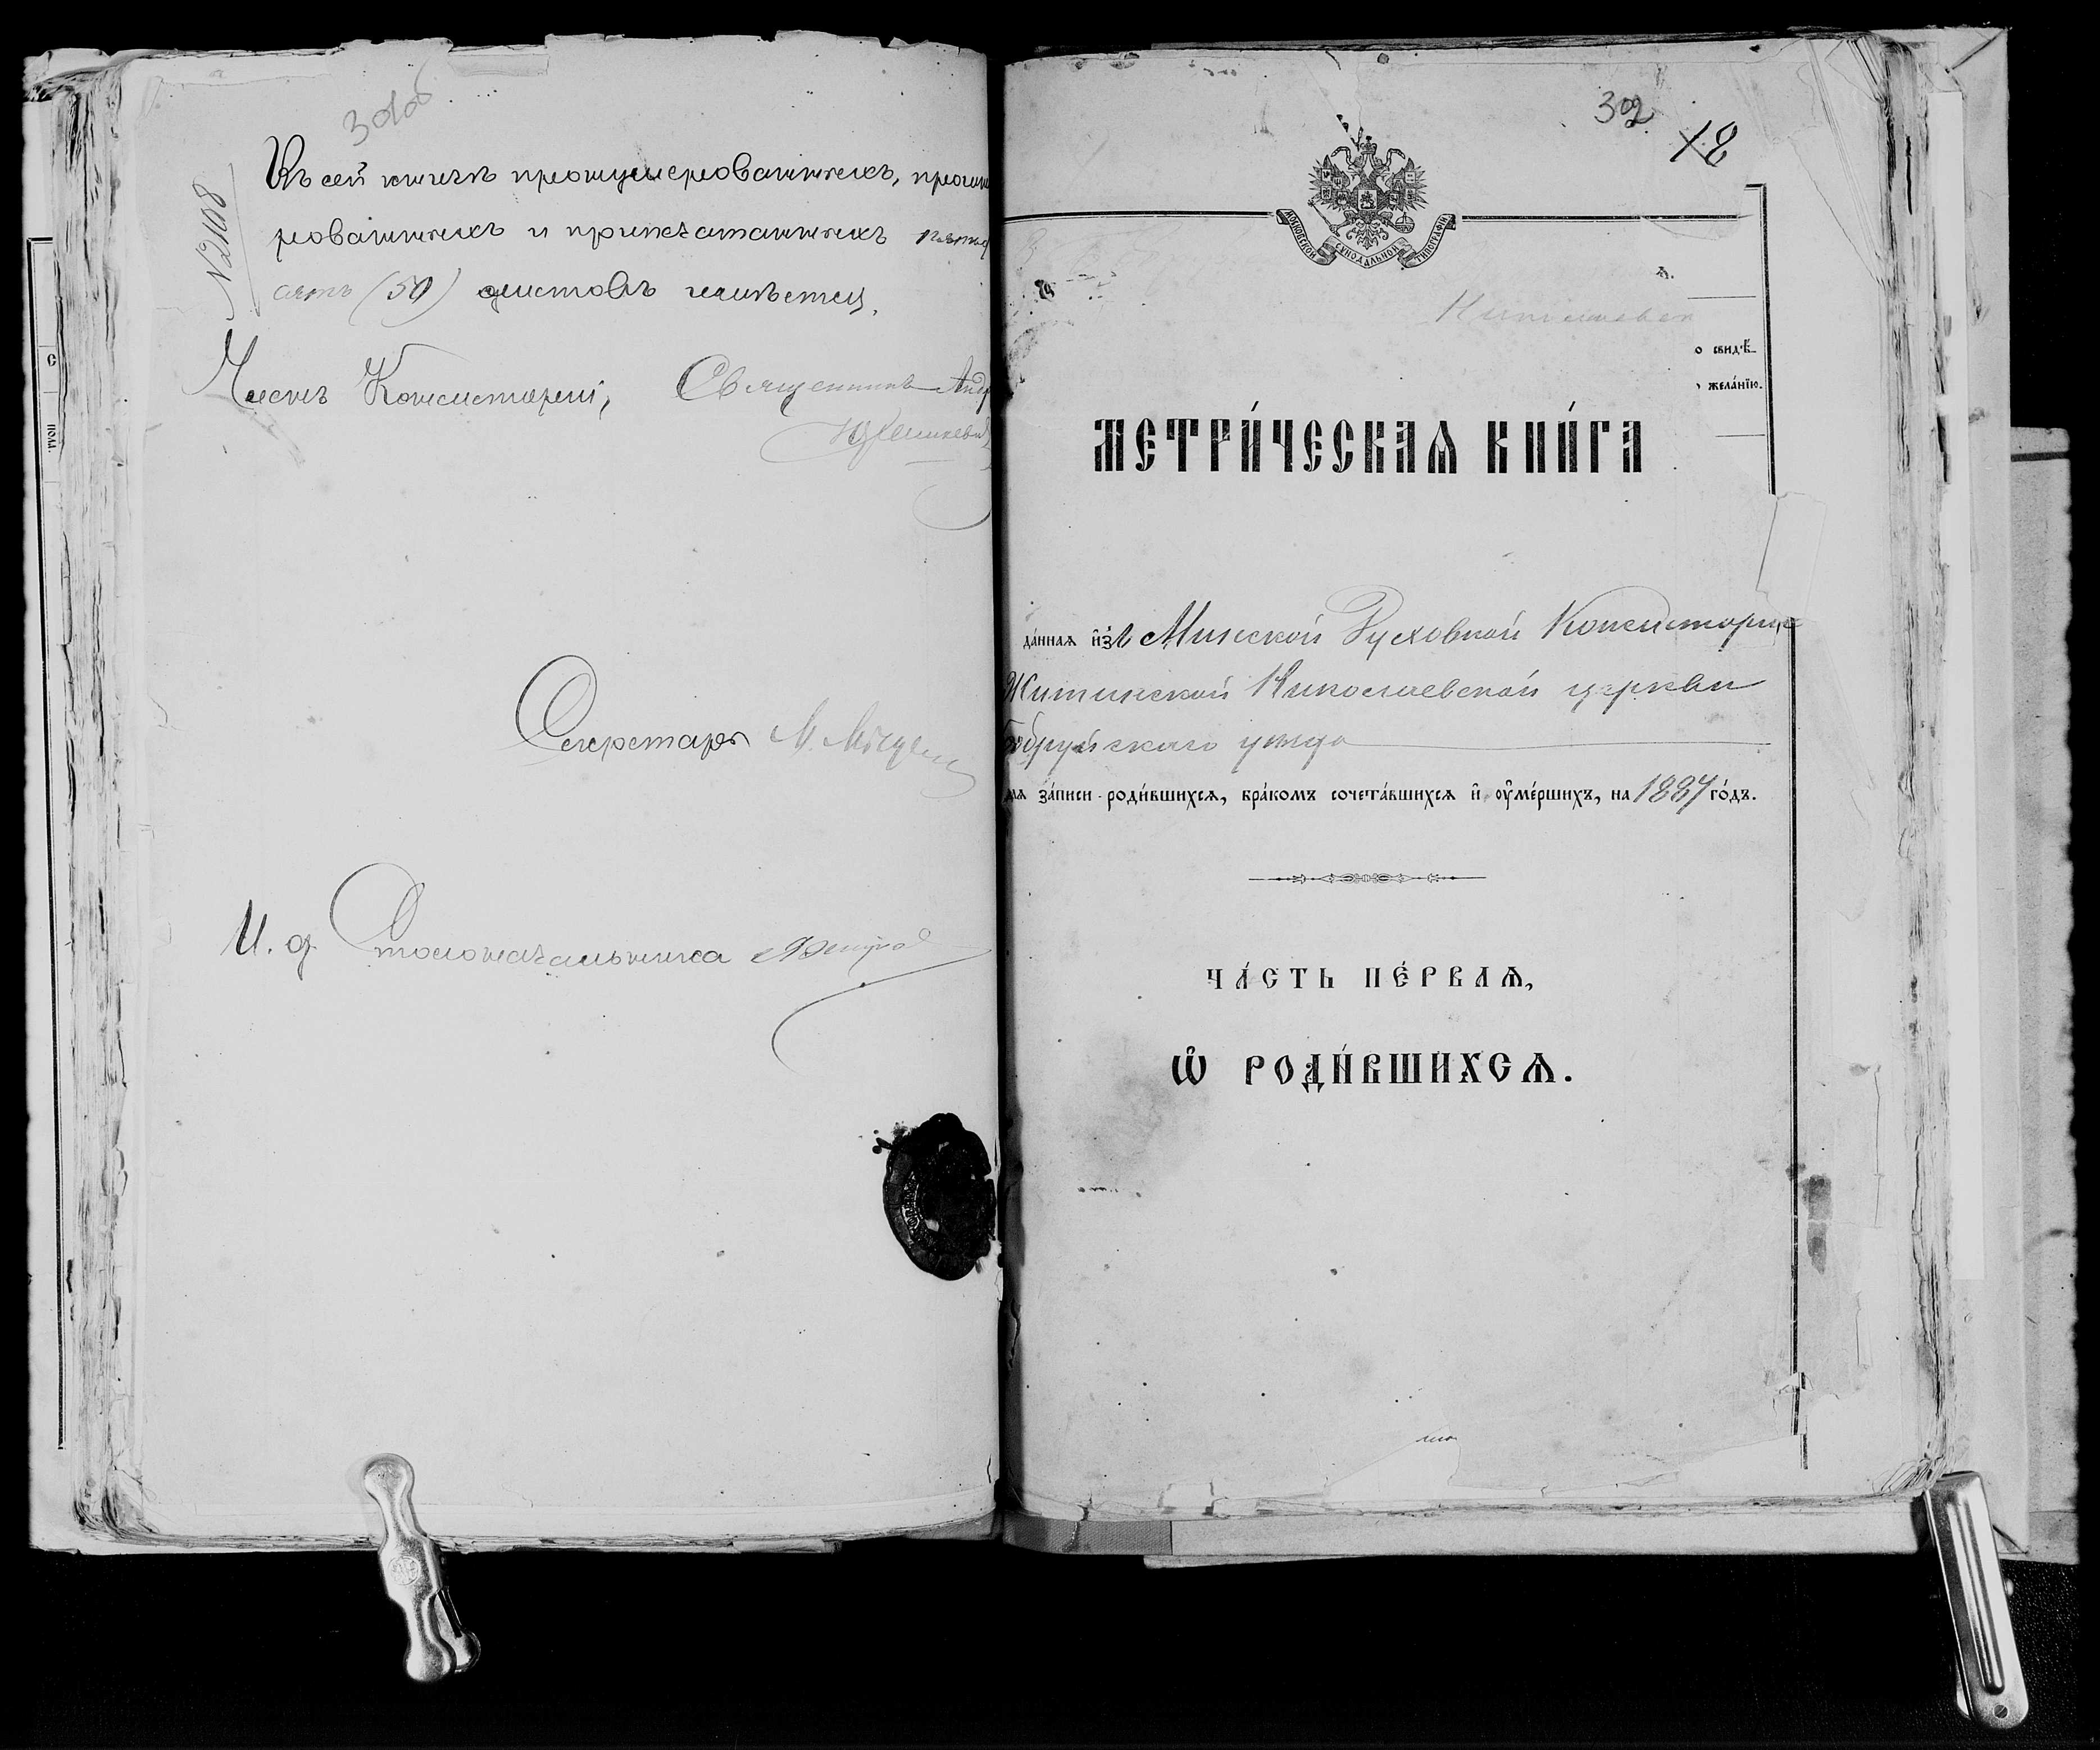 301об
№2108
Въ сей книгѣ пронумерованныхъ, прошну
рованныхъ и припечатанныхъ пятьд
сятъ (50) листовъ имѣется.
Членъ Консисторіи, Священникъ Андр
Секретарь М.
И. д. Столоначальника
302
18
МОСКОВСКОЙ СѴНОДАЛЬНОЙ ТИПОГРАФІИ
о свидѣ-
желáнїю.
МЕТРИ́ЧЕСКАѦ КНИ́ГА
дáнная и҆зъ Минской Духовной Консисторіи
Житинской Николаевской церкви
Бобруйскаго уѣзда
для зáписи роди́вшихсѧ, брáкомъ сочетáвшихсѧ и҆ ᲂу҆мéршихъ, на 1887 гóдъ.
ЧА́СТЬ ПЕ́РВАѦ,
Ѽ РОДИ́ВШИХСѦ.